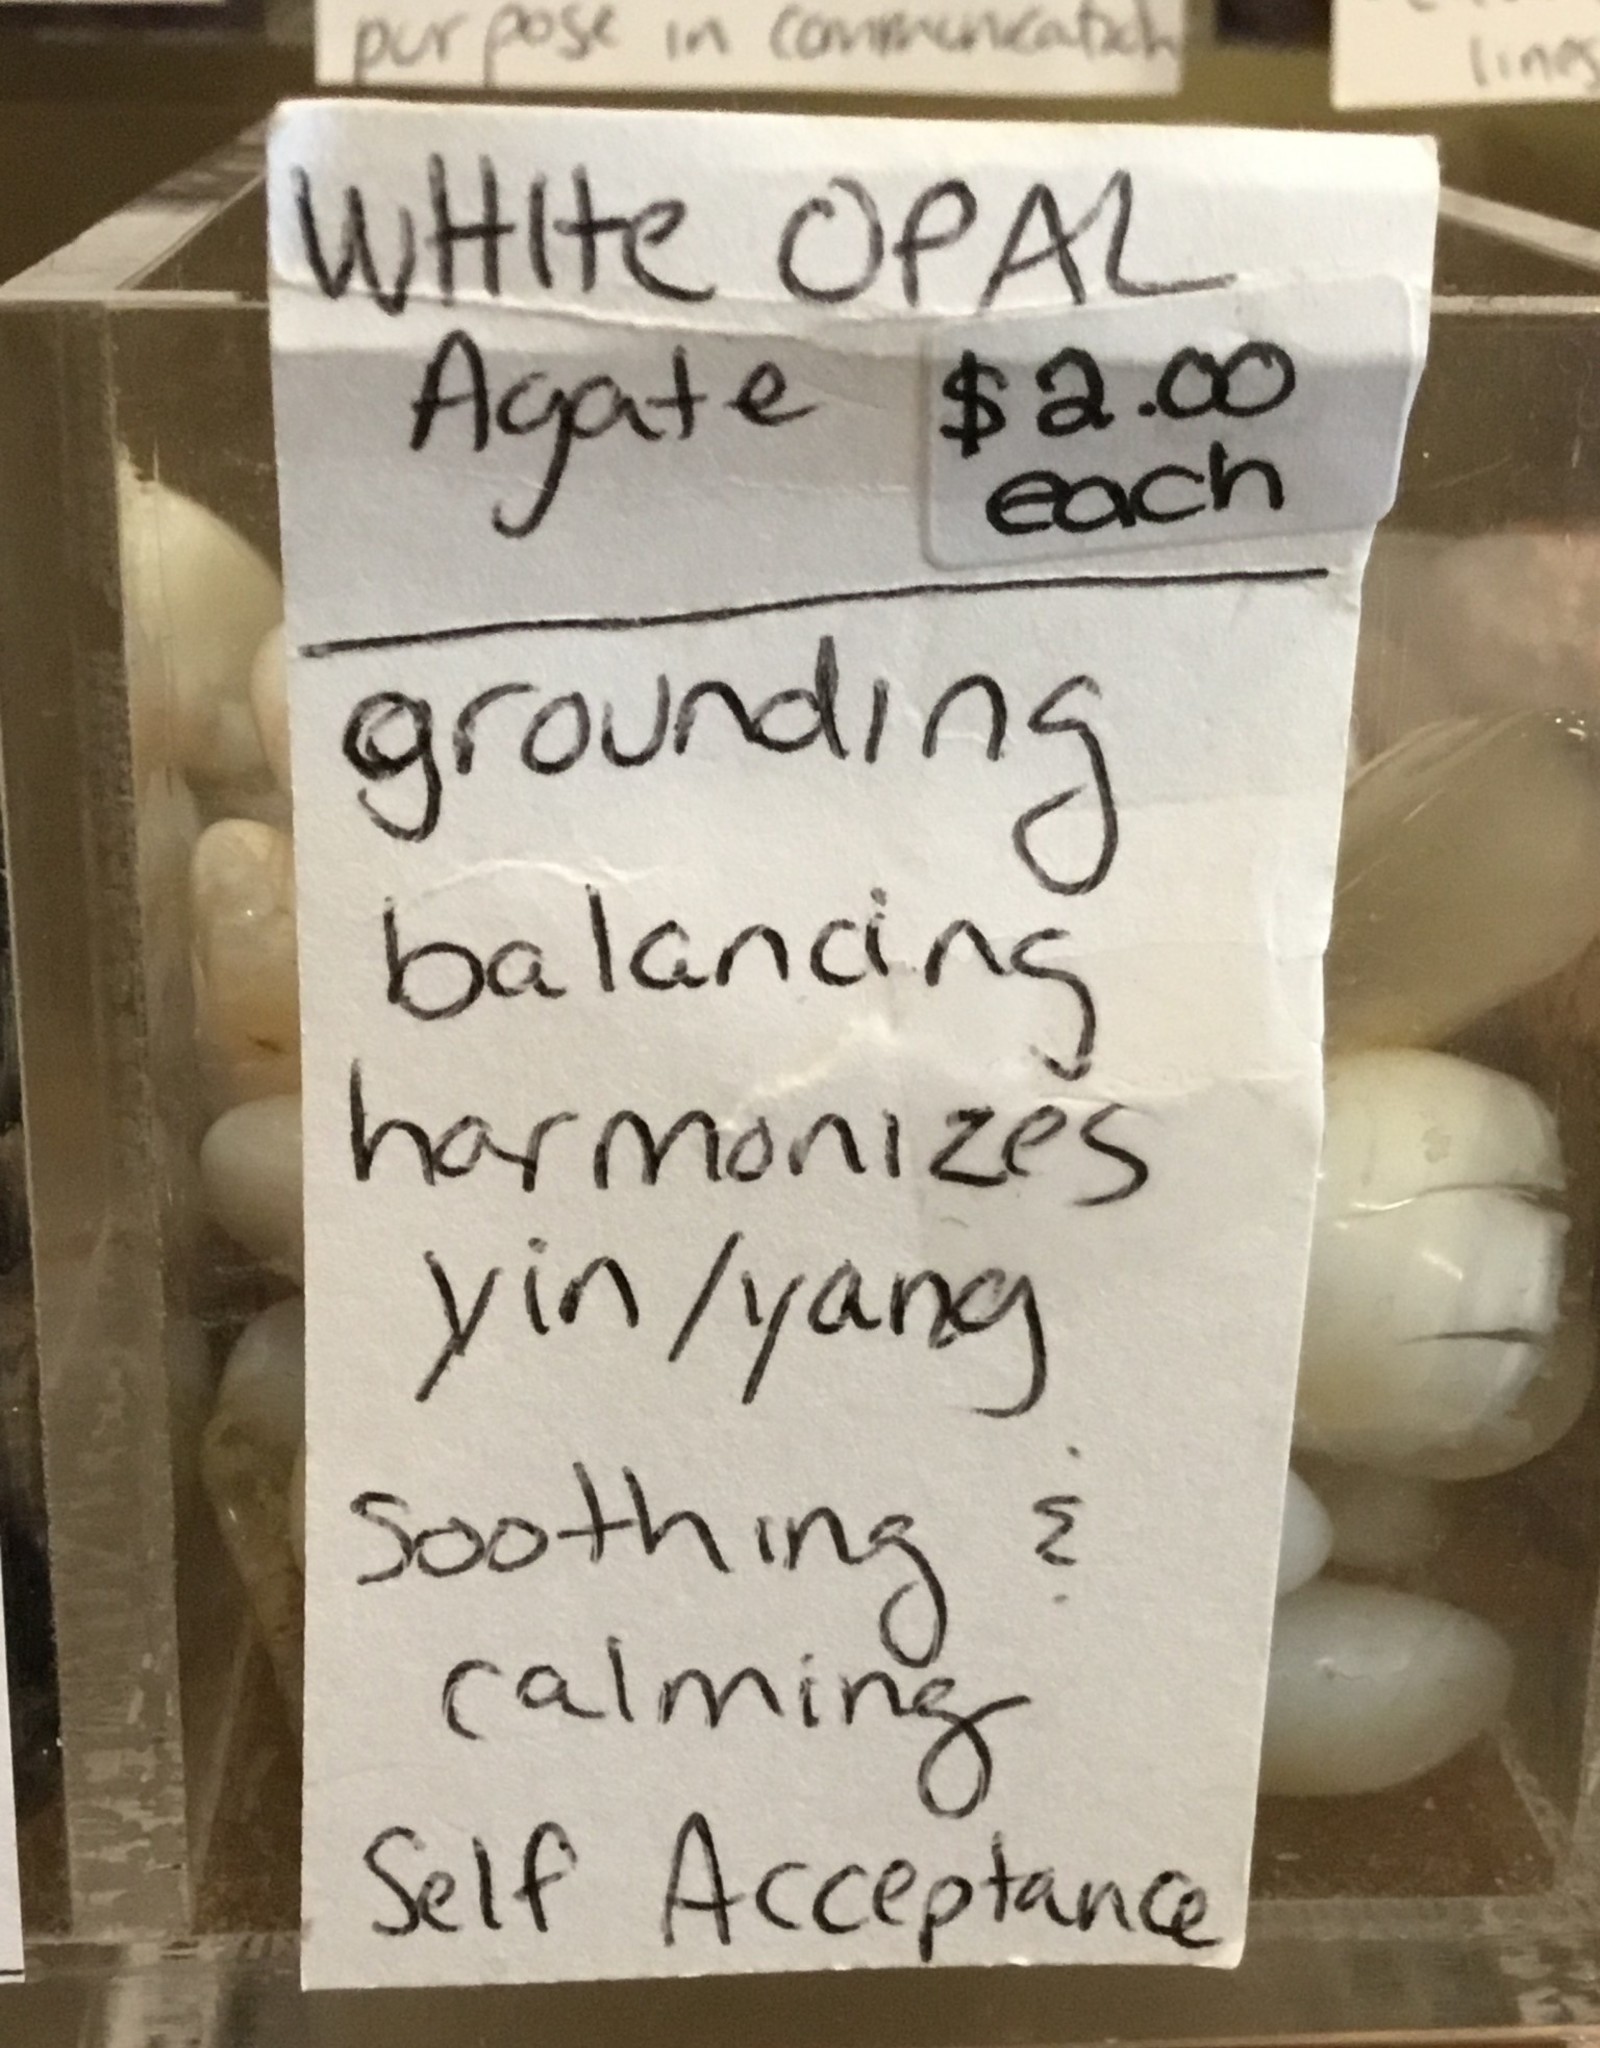 purpose in communication
lines
WHIte OPAL
Agate
$2.00
each
grounding
balancing
harmonizes
yin/yang
Soothing &
calming
Self Acceptance